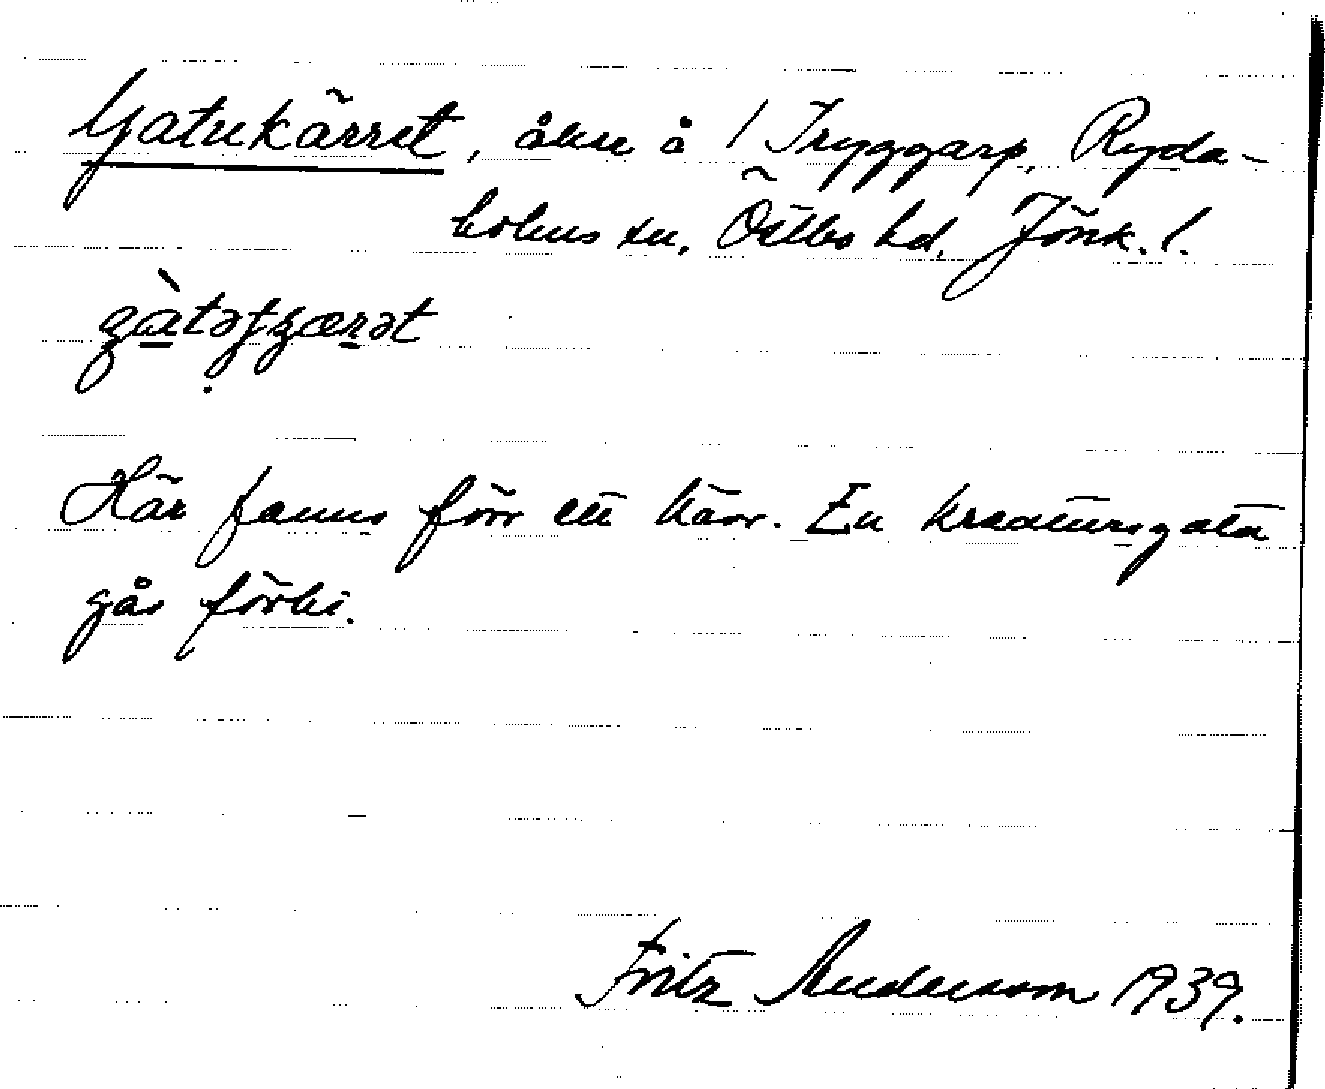 Gatukärret, åker å / Tryggarp, Ryda-
holms sn, Östbo hd, Jönk. l.
Här fanns förr ett kärr. En kreatursgata
går förbi.
Fritz Andersson 1939.